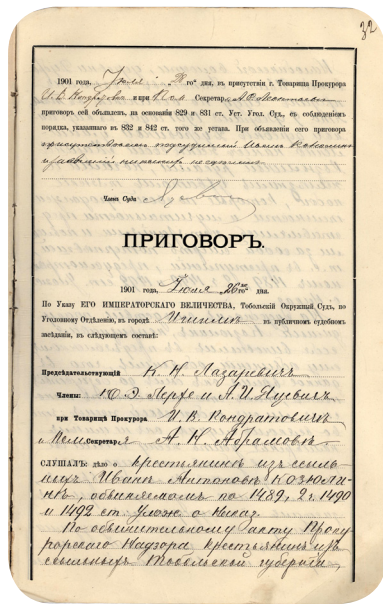 32
1901 года, Іюля 28 го дня, въ присутствіи г. Товарища Прокурора
И. В. Кондратовичъ и при Пом. Секретаря
приговоръ сей объявленъ, на основаніи 829 и 831 ст. Уст. Угол. Суд., съ соблюденіемъ
порядка, указаннаго въ 832 и 842 ст. того же устава. При объявленіи сего приговора
подсудимый
Члена Суда
ПРИГОВОРЪ.
1901 года, Іюля 26 го дня.
По Указу ЕГО ИМПЕРАТОРСКАГО ВЕЛИЧЕСТВА, Тобольскій Окружный Судъ, по
Уголовному Отдѣленію, въ городѣ Ишимѣ въ публичномъ судебномъ
засѣданіи, въ слѣдующемъ составѣ:
Предсѣдательствующій К. Н. Лазаревичъ
Члены: Ю. Э. Лерхе и А. И. Яцевичъ
при Товарищѣ Прокурора И. В. Кондратовичѣ
и Пом. Секретаря А. Н. Абрамовѣ
СЛУШАЛЪ: дѣло о крестьянинѣ изъ ссыль-
ныхъ Иванѣ Антоновѣ КОЗЮЛИ-
НѢ, обвиняемомъ по 1489, 2 ч. 1490
и 1492 ст. Улож. о Наказ.
По обвинительному акту Проку-
рорскаго Надзора крестьянинъ изъ
ссыльныхъ Тобольской губерніи,